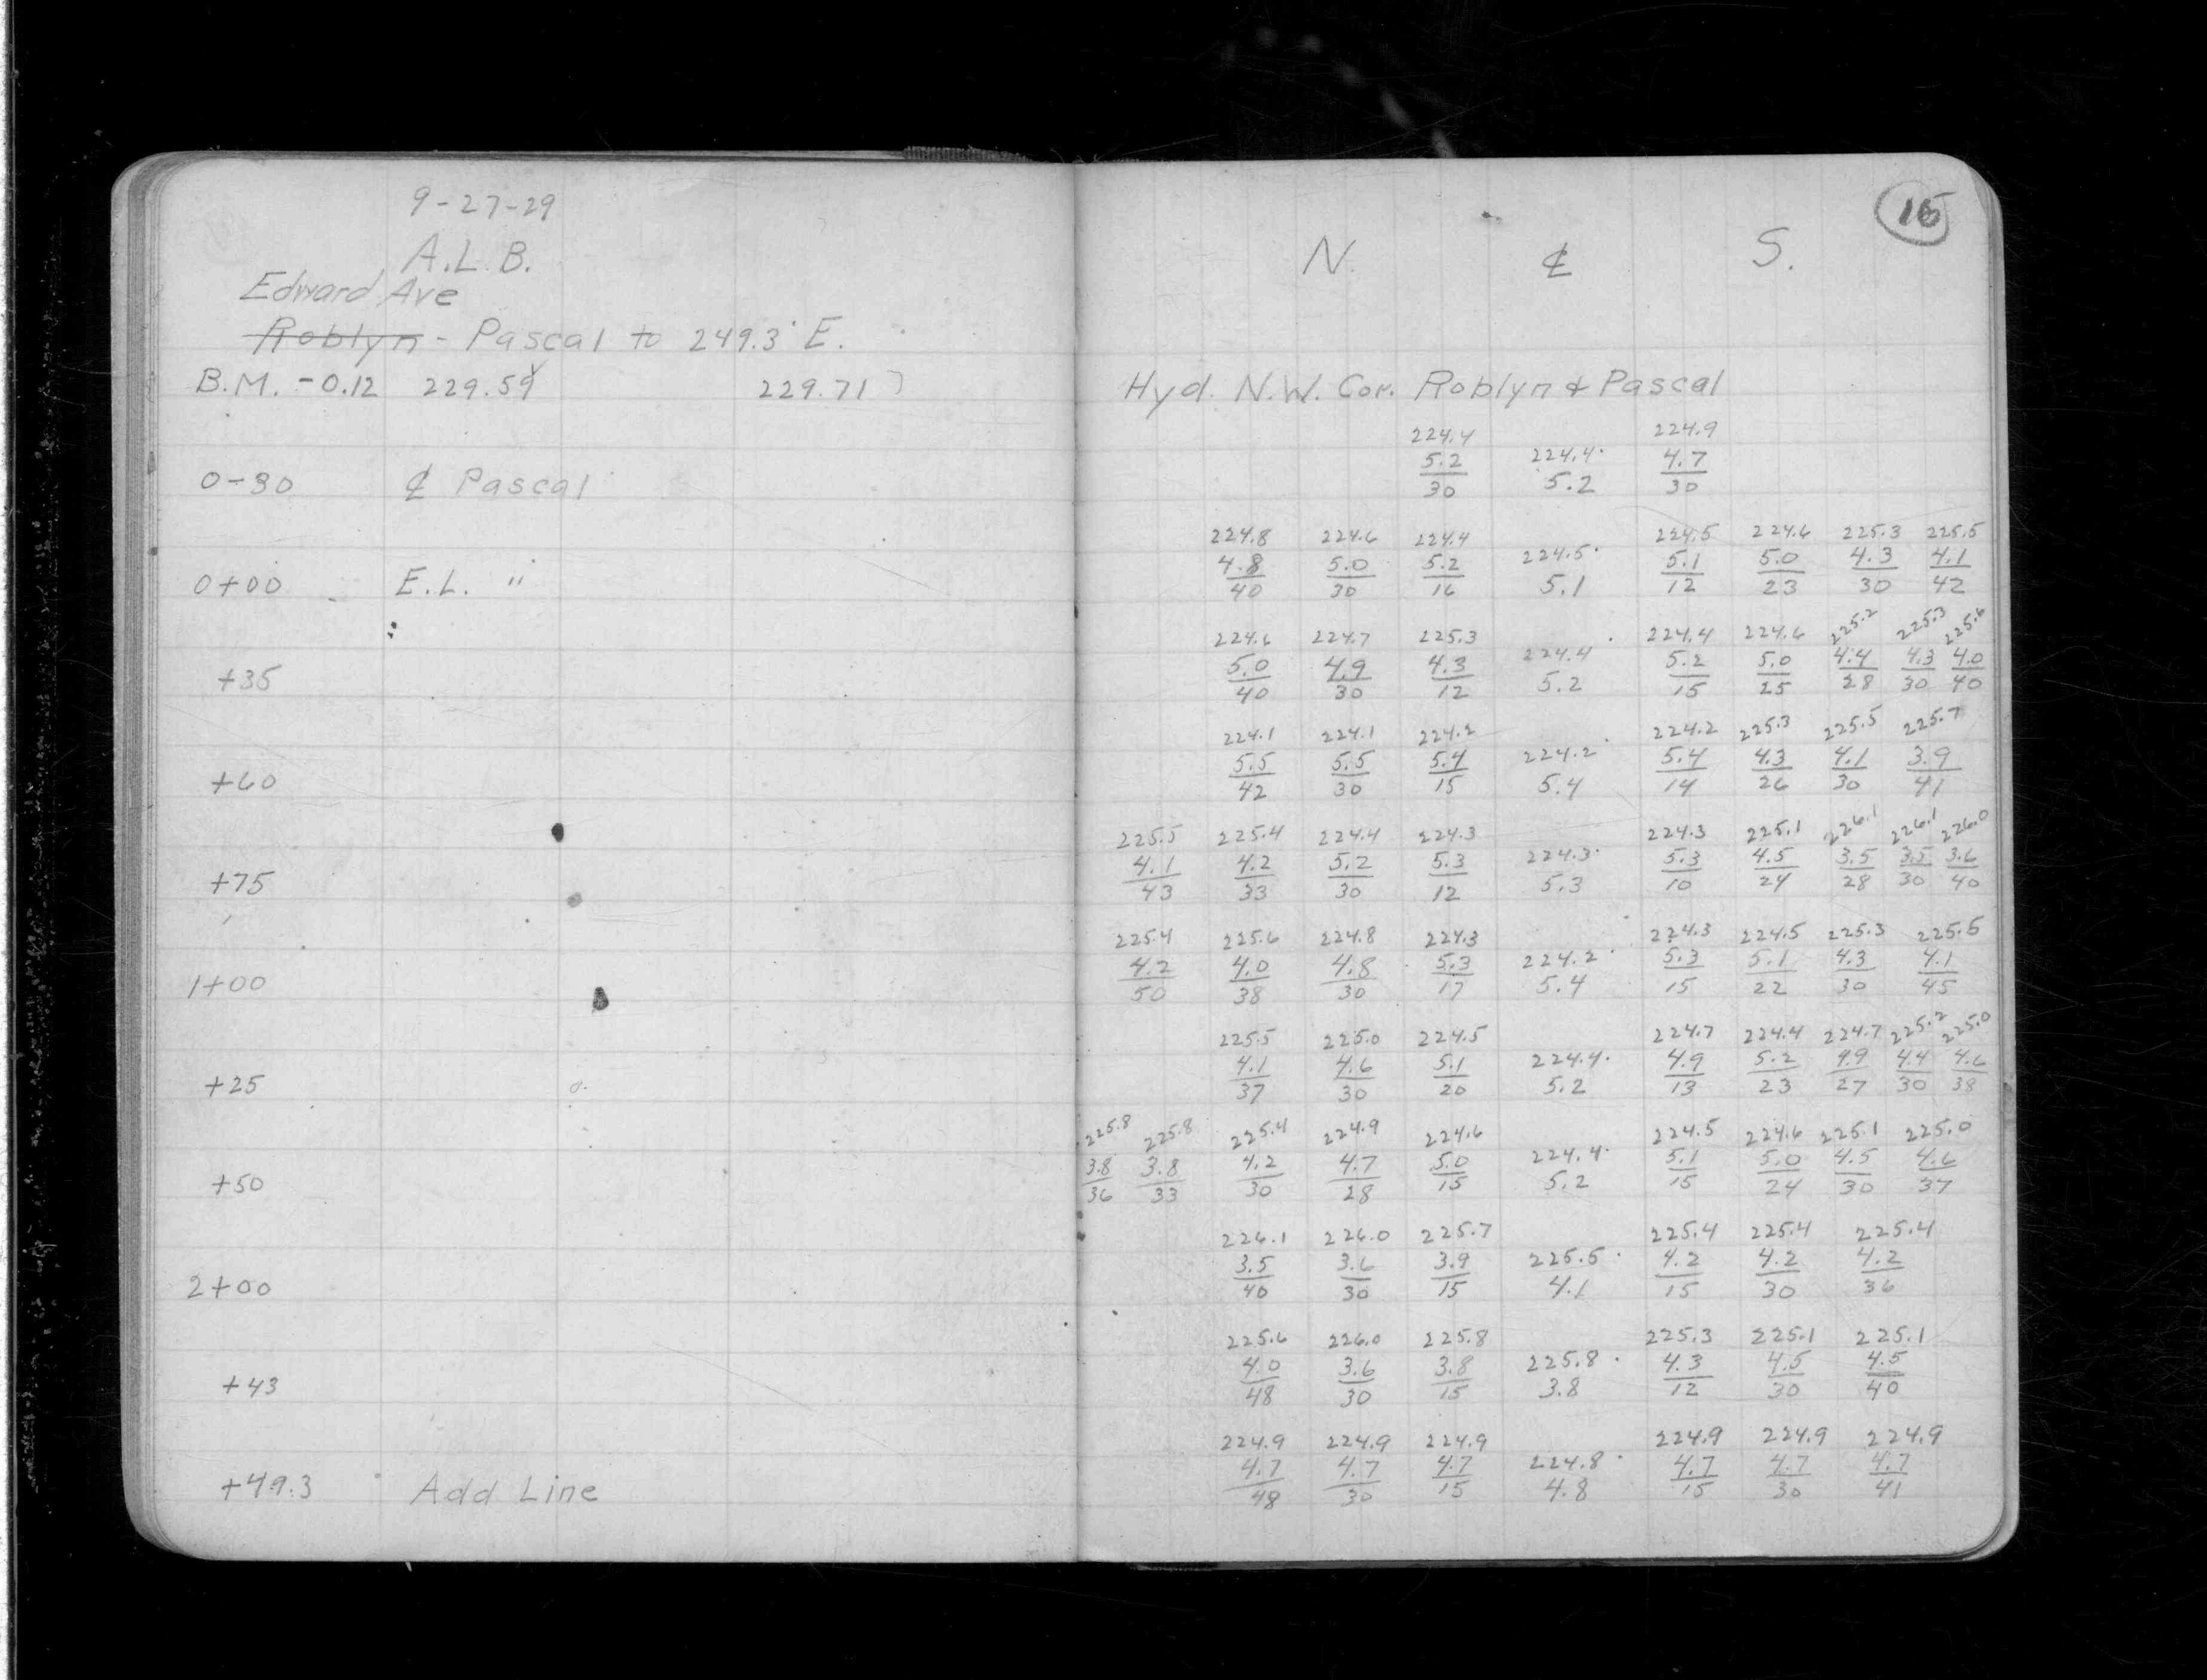 9-27-29
A.L.B.
Edward Ave
Roblyn - Pascal to 249.3' E.
B.M. -0.12 229.59 229.71
0-30 ℄ Pascal
0+00 E.L. "
+35
+60
+75
1+00
+25
+50
2+00
+43
+49.3 Add Line
16
N. ℄ S.
Hyd. N.W. Cor. Roblyn & Pascal
224.4 224.9
5.2 224.4 4.7
30 5.2 30
224.8 224.6 224.4 224.5 224.6 225.3 225.5
4.8 5.0 5.2 224.5 5.1 5.0 4.3 4.1
40 30 16 5.1 12 23 30 42
224.6 224.7 225.3 224.4 224.6 225.2 225.3 225.6
5.0 4.9 4.3 224.4 5.2 5.0 4.4 4.3 4.0
40 30 12 5.2 15 25 28 30 40
224.1 224.1 224.2 224.2 225.3 225.5 225.7
5.5 5.5 5.4 224.2 5.4 4.3 4.1 3.9
42 30 15 5.4 14 26 30 41
225.5 225.4 224.4 224.3 224.3 225.1 226.1 226.1 226.0
4.1 4.2 5.2 5.3 224.3 5.3 4.5 3.5 3.5 3.6
43 33 30 12 5.3 10 24 28 30 40
225.4 225.6 224.8 224.3 224.3 224.5 225.3 225.5
4.2 4.0 4.8 5.3 224.2 5.3 5.1 4.3 4.1
50 38 30 17 5.4 15 22 30 45
225.5 225.0 224.5 224.7 224.4 224.7 225.2 225.0
4.1 4.6 5.1 224.4 4.9 5.2 4.9 4.4 4.6
37 30 20 5.2 13 23 27 30 38
225.8 225.8 225.4 224.9 224.6 224.5 224.6 225.1 225.0
3.8 3.8 4.2 4.7 5.0 224.4 5.1 5.0 4.5 4.6
36 33 30 28 15 5.2 15 24 30 37
226.1 226.0 225.7 225.4 225.4 225.4
3.5 3.6 3.9 225.5 4.2 4.2 4.2
40 30 15 4.1 15 30 36
225.6 226.0 225.8 225.3 225.1 225.1
4.0 3.6 3.8 225.8 4.3 4.5 4.5
48 30 15 3.8 12 30 40
224.9 224.9 224.9 224.9 224.9 224.9
4.7 4.7 4.7 224.8 4.7 4.7 4.7
48 30 15 4.8 15 30 41